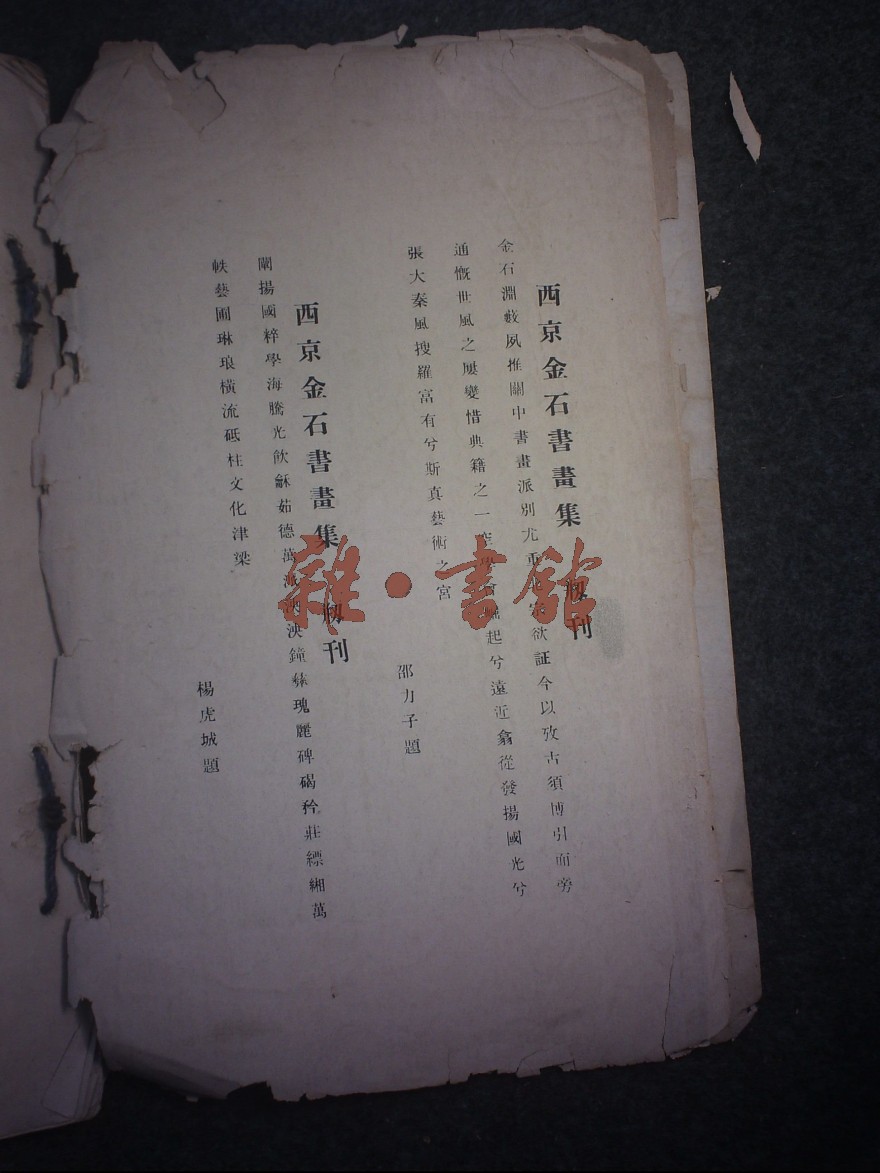 西京金石書畫集 刱刊
金石淵藪夙推關中書畫派別尤重欲証今以攷古須博引而旁
通慨世風之屢變惜典籍之一空學會崛起兮遠近翕從發揚國光兮
張大秦風搜羅富有兮斯真藝術之宮
邵力子題
西京金石書畫集 刱刊
闡揚國粹學海騰光飲龢茹德萬泱鐘彝瑰麗碑碣矜莊縹緗萬
帙藝圃琳琅橫流砥柱文化津梁
楊虎城題
雜·書館